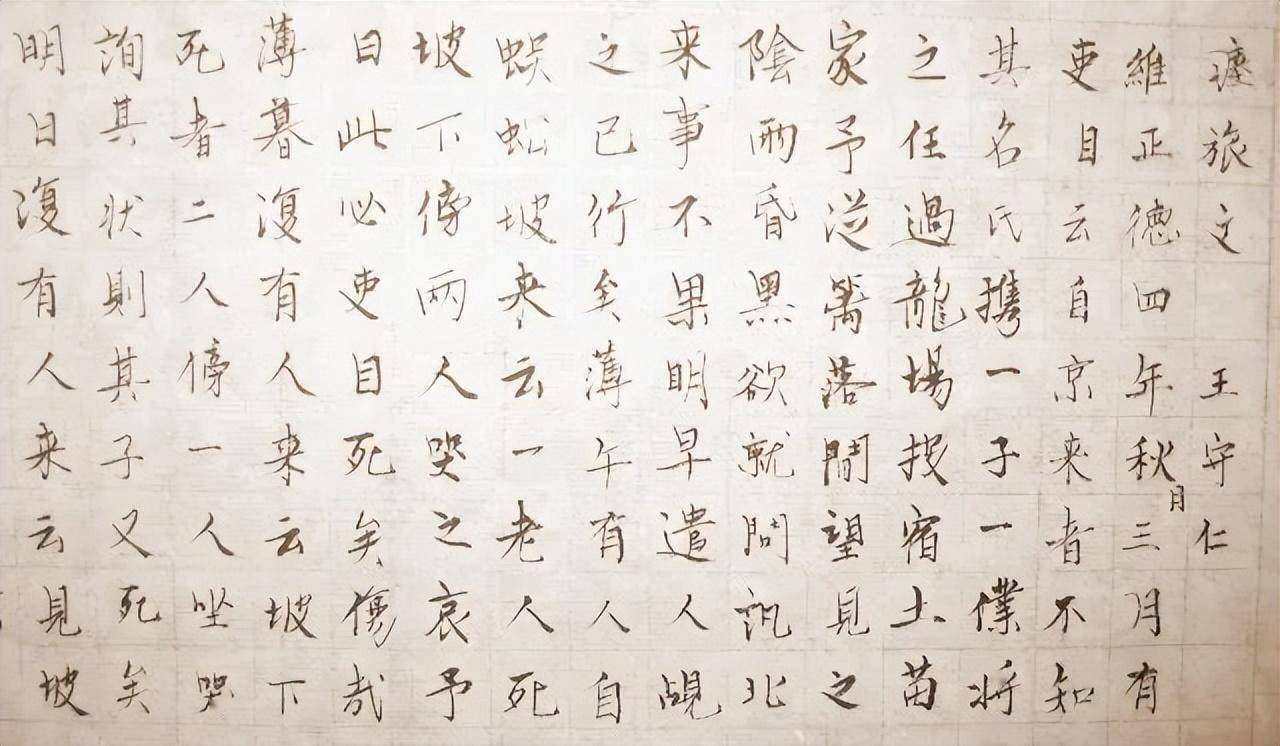 瘞旅文 王守仁
維正德四年秋月三月有
吏目云自京来者不知
其名氏携一子一僕將
之任過龍場投宿土苗
家予從籬落間望見之
陰雨昏黑欲就問訊北
来事不果明早遣人覘
之已行矣薄午有人自
蜈蚣坡来云一老人死
坡下傍兩人哭之哀予
曰此必吏目死矣傷哉
薄暮復有人来云坡下
死者二人傍一人坐哭
詢其状則其子又死矣
明日復有人来云見坡